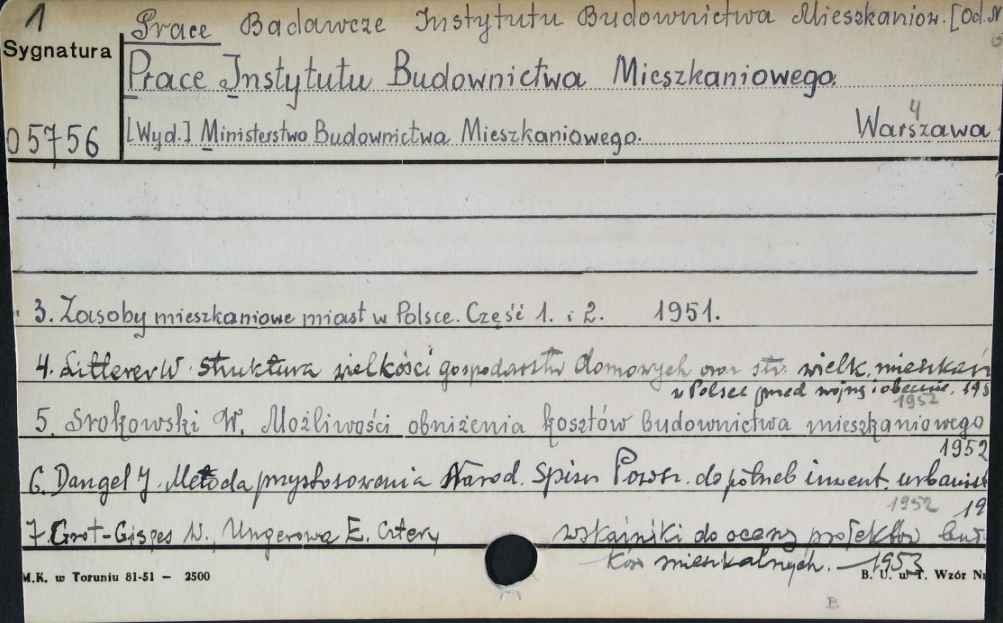 1 Prace Badawcze Instytutu Budownictwa Mieszkaniow. [Od. N
Sygnatura
Prace Instytutu Budownictwa Mieszkaniowego.
4
05756 [Wyd.] Ministerstwo Budownictwa Mieszkaniowego. Warszawa
3. Zasoby mieszkaniowe miast w Polsce. Część 1. i 2. 1951.
4. Litterer W. Struktura wielkości gospodarstw domowych oraz str. wielk. mieszkań
w Polsce przed wojną i obecnie. 195
1952
5. Srokowski W. Możliwości obniżenia kosztów budownictwa mieszkaniowego
1952
6. Dangel J. Metoda przystosowania Narod. Spisu Powsz. do potrzeb inwent. urbanist
1952 19
7. Grot-Gispes W., Ungerowa E. Cztery wskaźniki do oceny projektów bud
ków mieszkalnych. — 1953
M.K. w Toruniu 81-51 — 2500 B. U. w T. Wzór Nr
B